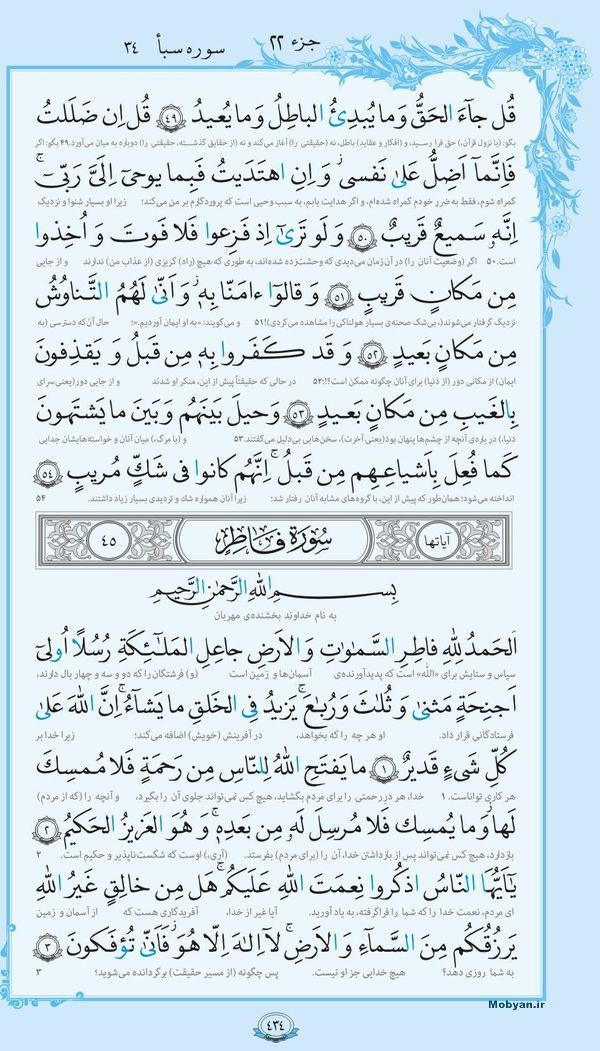 جزء ۲۲ سوره سبأ ۳۴
قُل جآءَ الحَقُّ وَما يُبدِئُ الباطِلُ وَما يُعيدُ ﴿۴۹﴾ قُل اِن ضَلَلتُ
بگو: (با نزول قرآن،) حق فرا رسید، و (افکار و عقاید) باطل، نه (حقیقتی را) آغاز می‌کند و نه (از حقایق گذشته، حقیقتی را) دوباره به میان می‌آورد. ۴۹ بگو: اگر
فَاِنَّمآ اَضِلُّ عَلىٰ نَفسى وَ اِنِ اهتَدَيتُ فَبِما يوحى اِلَىَّ رَبّى
گمراه شوم، فقط به ضرر خودم گمراه شده‌ام، و اگر هدایت یابم، به سبب وحیی است که پروردگارم بر من می‌کند؛ زیرا او بسیار شنوا و نزدیک
اِنَّه سَميعٌ قَريبٌ ﴿۵۰﴾ وَ لَو تَرىٰٓ اِذ فَزِعوا فَلا فَوتَ وَ اُخِذوا
است. ۵۰ اگر (وضعیت آنان را) در آن زمان می‌دیدی که وحشت‌زده شده‌اند، به طوری که هیچ (راه) گریزی (از عذاب من) ندارند و از جایی
مِن مَكانٍ قَريبٍ ﴿۵۱﴾ وَ قالوٓا ءامَنّا بِه وَ اَنّىٰ لَهُمُ التَّناوُشُ
نزدیک گرفتار می‌شوند(، بی‌شک صحنه‌ی بسیار هولناکی را مشاهده می‌کردی)! ۵۱ و می‌گویند: «به او ایمان آوردیم.»؛ حال آن‌که دسترسی (به
مِن مَكانٍ بَعيدٍ ﴿۵۲﴾ وَ قَد كَفَروا بِه مِن قَبلُ وَ يَقذِفونَ
ایمان) از مکانی دور (از دنیا) برای آنان چگونه ممکن است؟! ۵۲ در حالی که حقیقتاً پیش از این، منکر او شدند و از جایی دور (یعنی سرای
بِالغَيبِ مِن مَكانٍ بَعيدٍ ﴿۵۳﴾ وَ حيلَ بَينَهُم وَ بَينَ ما يَشتَهونَ
دنیا،) درباره‌ی آنچه از چشم‌ها پنهان بود (یعنی آخرت)، سخن‌هایی بی‌دلیل می‌گفتند. ۵۳ و (با مرگ،) میان آنان و خواسته‌هایشان جدایی
كَما فُعِلَ بِاَشياعِهِم مِن قَبلُ اِنَّهُم كانوا فى شَكٍّ مُريبٍ ﴿۵۴﴾
انداخته می‌شود؛ همان‌طور که پیش از این، با گروه‌های مشابه آنان رفتار شد؛ زیرا آنان همواره شک و تردیدی بسیار زیاد داشتند. ۵۴
آیاتها سُورَةُ فَاطِرٍ ۴۵
بِسمِ اللهِ الرَّحمٰنِ الرَّحيمِ
به نام خداوند بخشنده‌ی مهربان
اَلحَمدُ لِلّٰهِ فاطِرِ السَّمٰوٰتِ وَ الاَرضِ جاعِلِ المَلٰٓئِكَةِ رُسُلًا اُولىٓ
سپاس و ستایش برای «الله» است که پدیدآورنده‌ی آسمان‌ها و زمین است (و) فرشتگان را که دو و سه و چهار بال دارند،
اَجنِحَةٍ مَثنىٰ وَ ثُلٰثَ وَ رُبٰعَ يَزيدُ فِى الخَلقِ ما يَشآءُ اِنَّ اللهَ عَلىٰ
فرستادگانی قرار داد. او هر چه را که بخواهد، در آفرینش (خویش) اضافه می‌کند؛ زیرا خدا بر
كُلِّ شَىءٍ قَديرٌ ﴿۱﴾ ما يَفتَحِ اللهُ لِلنّاسِ مِن رَحمَةٍ فَلا مُمسِكَ
هر کاری تواناست. ۱ خدا، هر در رحمتی را برای مردم بگشاید، هیچ کس نمی‌تواند جلوی آن را بگیرد، و آنچه را (که از مردم)
لَها وَ ما يُمسِك فَلا مُرسِلَ لَه مِن بَعدِه وَ هُوَ العَزيزُ الحَكيمُ ﴿۲﴾
بازدارد، هیچ کس نمی‌تواند پس از بازداشتن خدا، آن را (برای مردم) بفرستد. (آری،) اوست که شکست‌ناپذیر و حکیم است. ۲
يٰٓاَيُّهَا النّاسُ اذكُروا نِعمَتَ اللهِ عَلَيكُم هَل مِن خالِقٍ غَيرُ اللهِ
ای مردم، نعمت خدا را که شما را فراگرفته، به یاد آورید. آیا غیر از خدا، آفریدگاری هست که از آسمان و زمین
يَرزُقُكُم مِنَ السَّمآءِ وَ الاَرضِ لآ اِلٰهَ اِلّا هُوَ فَاَنّىٰ تُؤفَكونَ ﴿۳﴾
به شما روزی دهد؟ هیچ خدایی جز او نیست. پس چگونه (از مسیر حقیقت) برگردانده می‌شوید؟ ۳
Mobyan.ir
۴۳۴